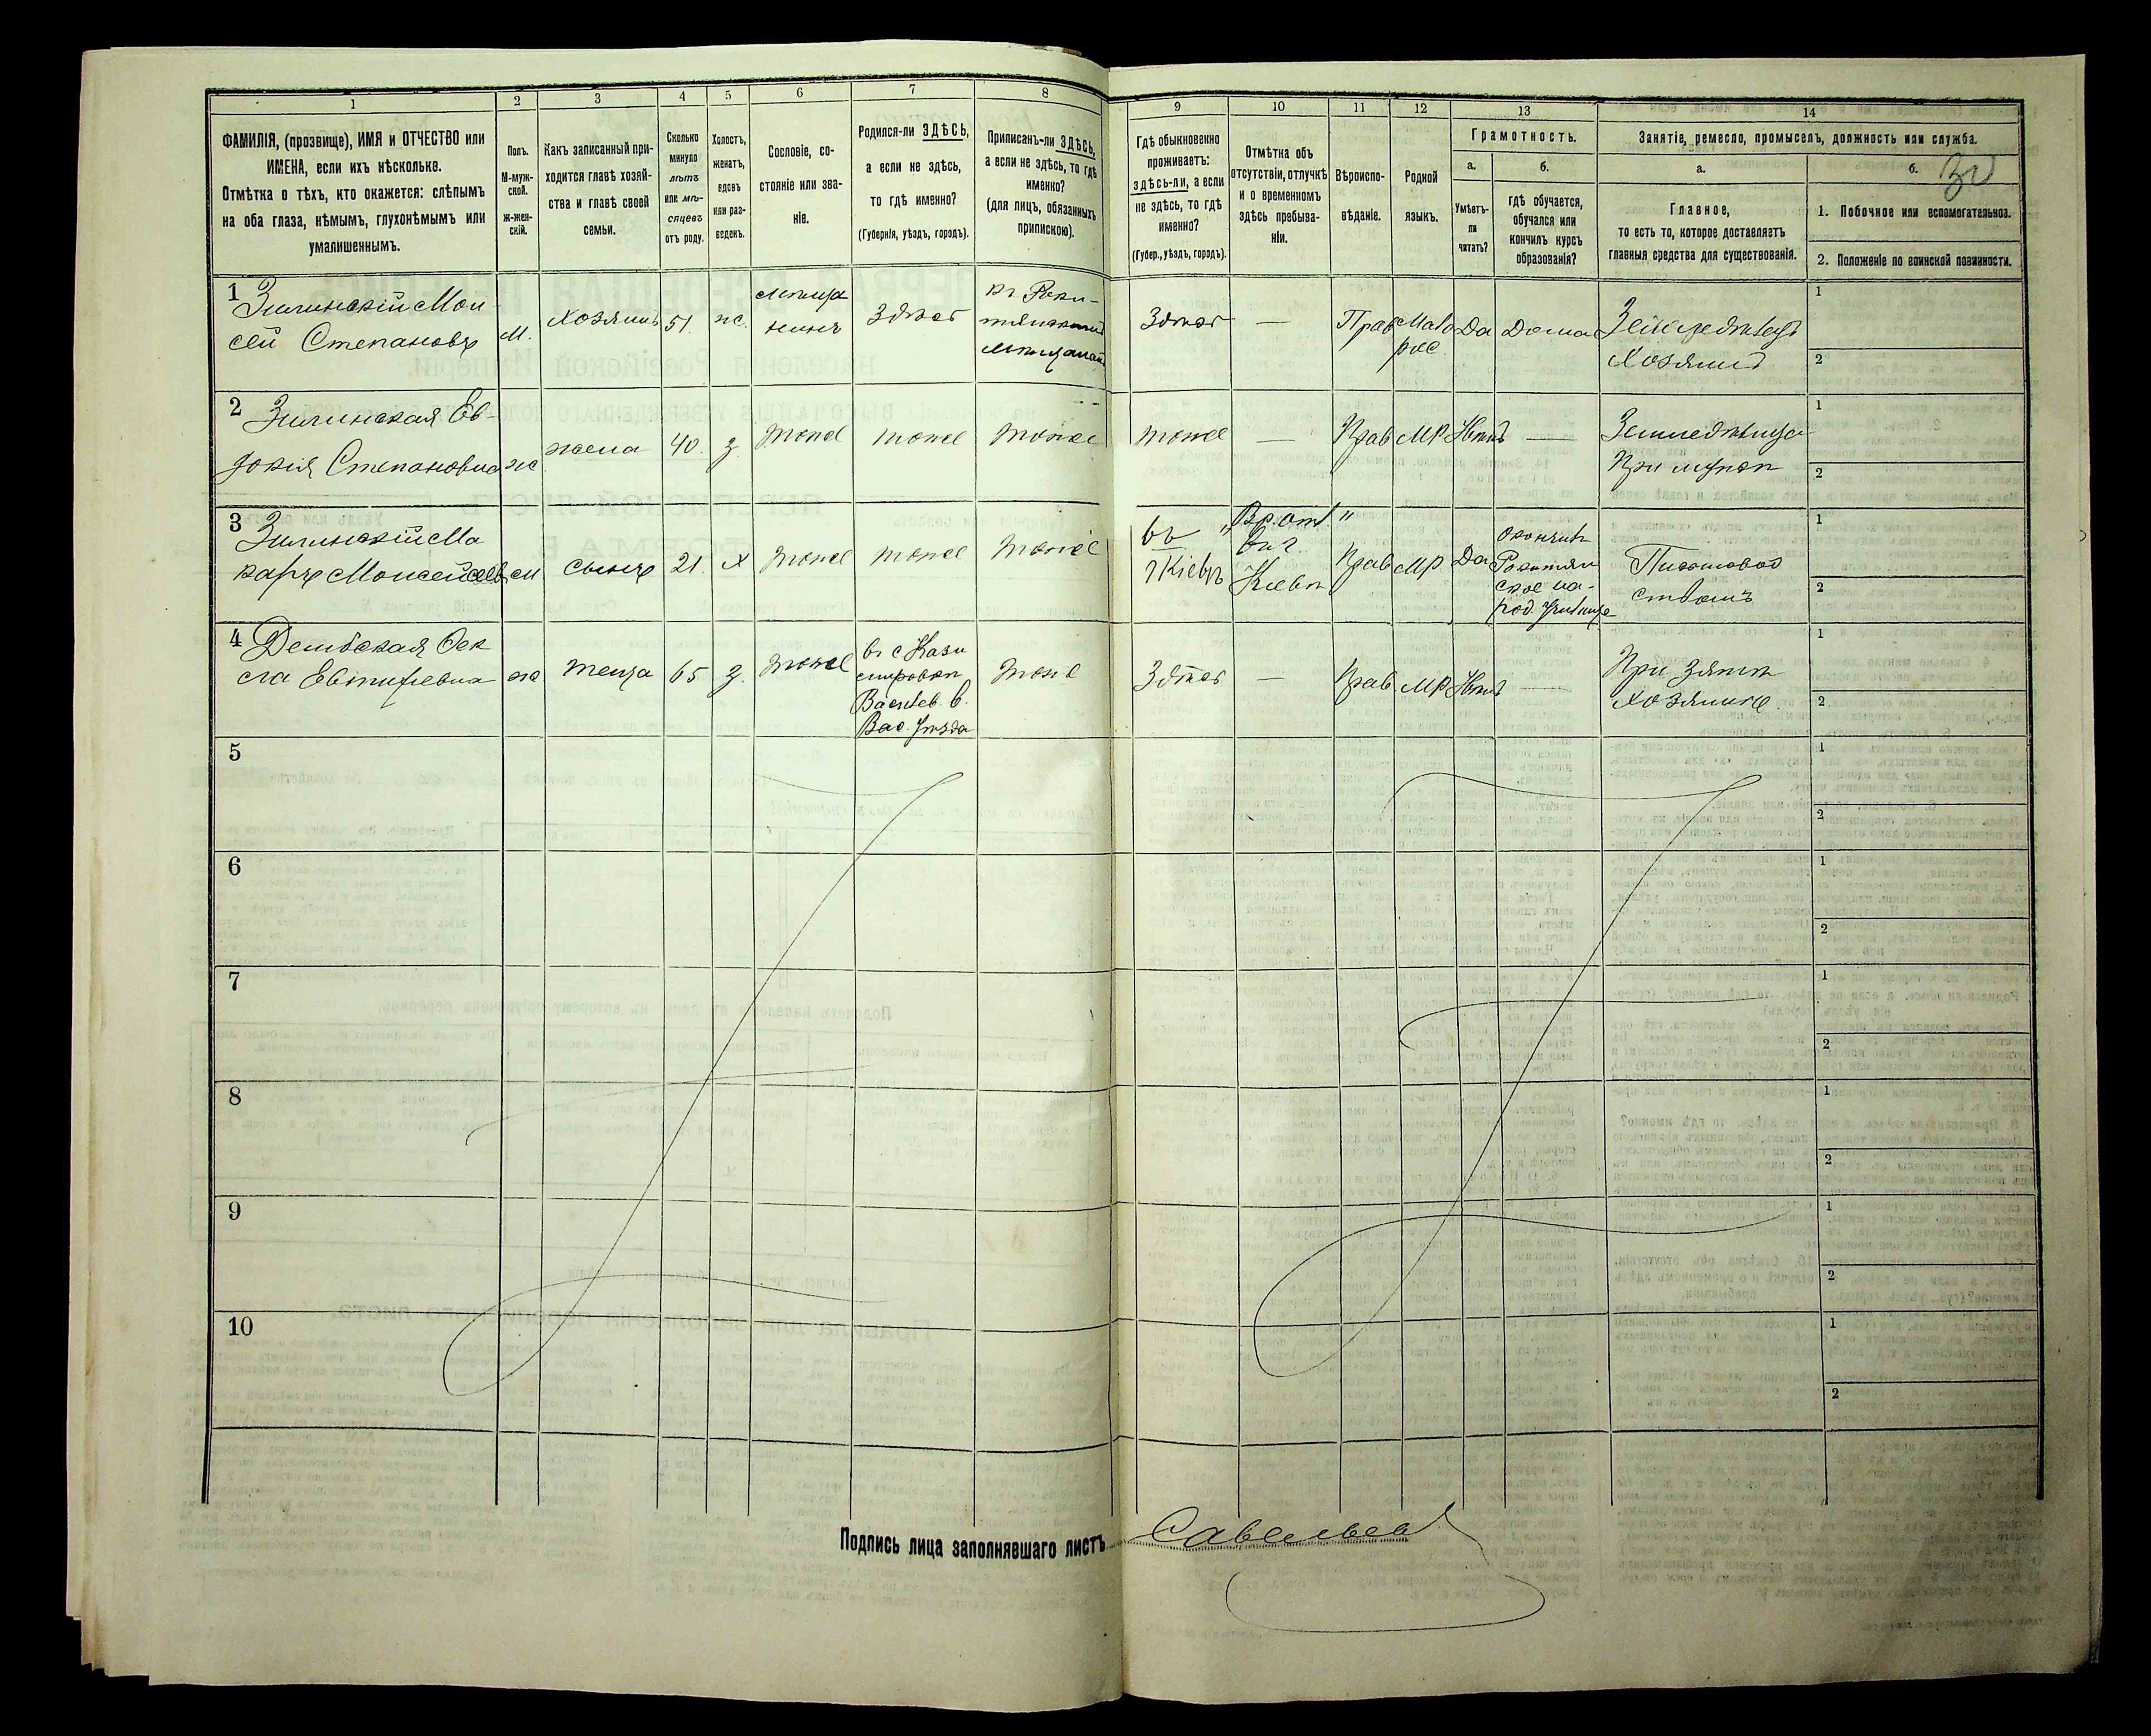 1
2
3
4
5
6
7
8
ФАМИЛІЯ, (прозвище), ИМЯ и ОТЧЕСТВО или
ИМЕНА, если ихъ нѣсколько.
Отмѣтка о тѣхъ, кто окажется: слѣпымъ
на оба глаза, нѣмымъ, глухонѣмымъ или
умалишеннымъ.
Полъ.
М-муж-
ской.
ж-жен-
скій.
Какъ записанный при-
ходится главѣ хозяй-
ства и главѣ своей
семьи.
Сколько
минуло
лѣтъ
или мѣ-
сяцевъ
отъ роду.
Холостъ,
женатъ,
вдовъ
или раз-
веденъ.
Сословіе, со-
стояніе или зва-
ніе.
Родился-ли ЗДѢСЬ,
а если не здѣсь,
то гдѣ именно?
(Губернія, уѣздъ, городъ).
Приписанъ-ли ЗДѢСЬ,
а если не здѣсь, то гдѣ
именно?
(для лицъ, обязанныхъ
припискою).
9
10
11
12
13
14
Гдѣ обыкновенно
проживаетъ:
здѣсь-ли, а если
не здѣсь, то гдѣ
именно?
(Губер., уѣздъ, городъ).
Отмѣтка объ
отсутствіи, отлучкѣ
и о временномъ
здѣсь пребыва-
ніи.
Вѣроиспо-
вѣданіе.
Родной
языкъ.
Грамотность.
а.
б.
Умѣетъ-
ли
читать?
гдѣ обучается,
обучался или
кончилъ курсъ
образованія?
Занятіе, ремесло, промыселъ, должность или служба.
а.
б.
30
Главное,
то есть то, которое доставляетъ
главныя средства для существованія.
1. Побочное или вспомогательное.
2. Положеніе по воинской повинности.
1
Зилинскій Мои-
сей Степановъ
м.
Хозяинъ
51.
ж.
мѣща
нинъ
Здѣсь
къ Роки-
тянский
Здѣсь
—
Прав
Мало
рос.
Да
Дома
Хозяинъ
1
2
2
Зилинская Ев-
докія Степановна
ж
жена
40.
з.
тоже
тоже
тоже
тоже
—
Прав
МР
Нѣтъ
—
При мужѣ
1
2
3
Зилинскій Ма
каръ Моисеевъ
м
сынъ
21.
х
тоже
тоже
тоже
въ
г Кіевъ
"Вр. от."
въ г.
Кіевѣ
Прав
МР
Да
окончилъ
Рокитян
ское на-
род. Училище
Письмовод
ствомъ
1
2
4
Дембская Фек
ла Евтифіевна
ж
теща
65
з.
тоже
въ с Кази
мировкѣ
Васильев. в.
Вас. Уѣзда
тоже
Здѣсь
—
Прав.
МР
Нѣтъ
—
При зятѣ
хозяинѣ.
1
2
5
1
2
6
1
2
7
1
2
8
1
2
9
1
2
10
1
2
Подпись лица заполнявшаго листъ
Савельев